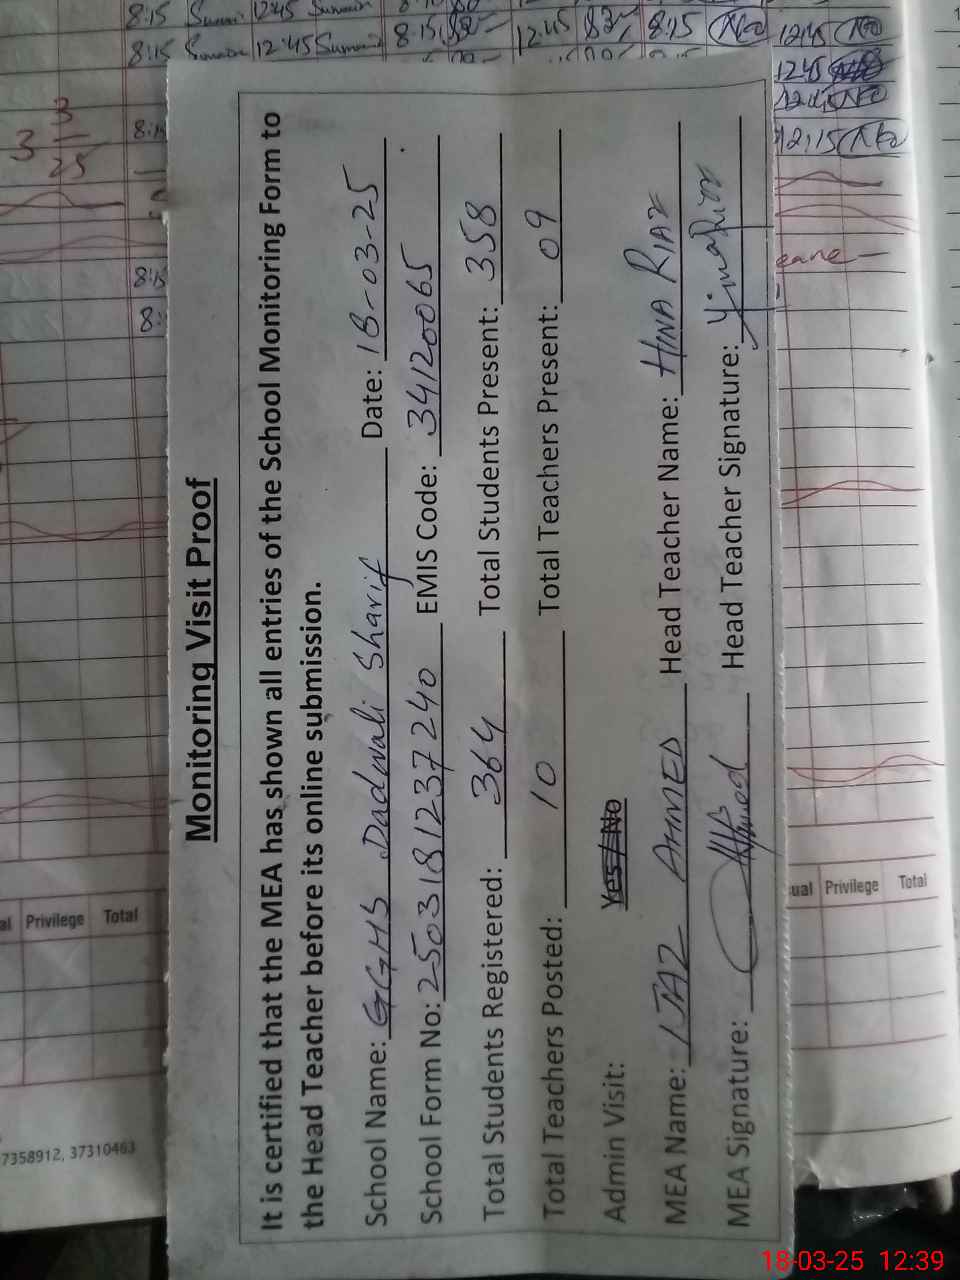 Monitoring Visit Proof
It is certified that the MEA has shown all entries of the School Monitoring Form to
the Head Teacher before its online submission.
School Name: GGHS Dadwali Sharif Date: 18-03-25
School Form No: 2503181237240 EMIS Code: 34120065
Total Students Registered: 364 Total Students Present: 358
Total Teachers Posted: 10 Total Teachers Present: 09
Admin Visit: Yes / No
MEA Name: IJAZ AHMED Head Teacher Name: HINA RIAZ
MEA Signature: Head Teacher Signature:
8:15 12:45
8:15 12:45 8:15 12:45 8:15 12:45
12:45
12:15
3 3/25
8:15
8:15
eane
al Privilege Total
ual Privilege Total
7358912, 37310463
18-03-25 12:39